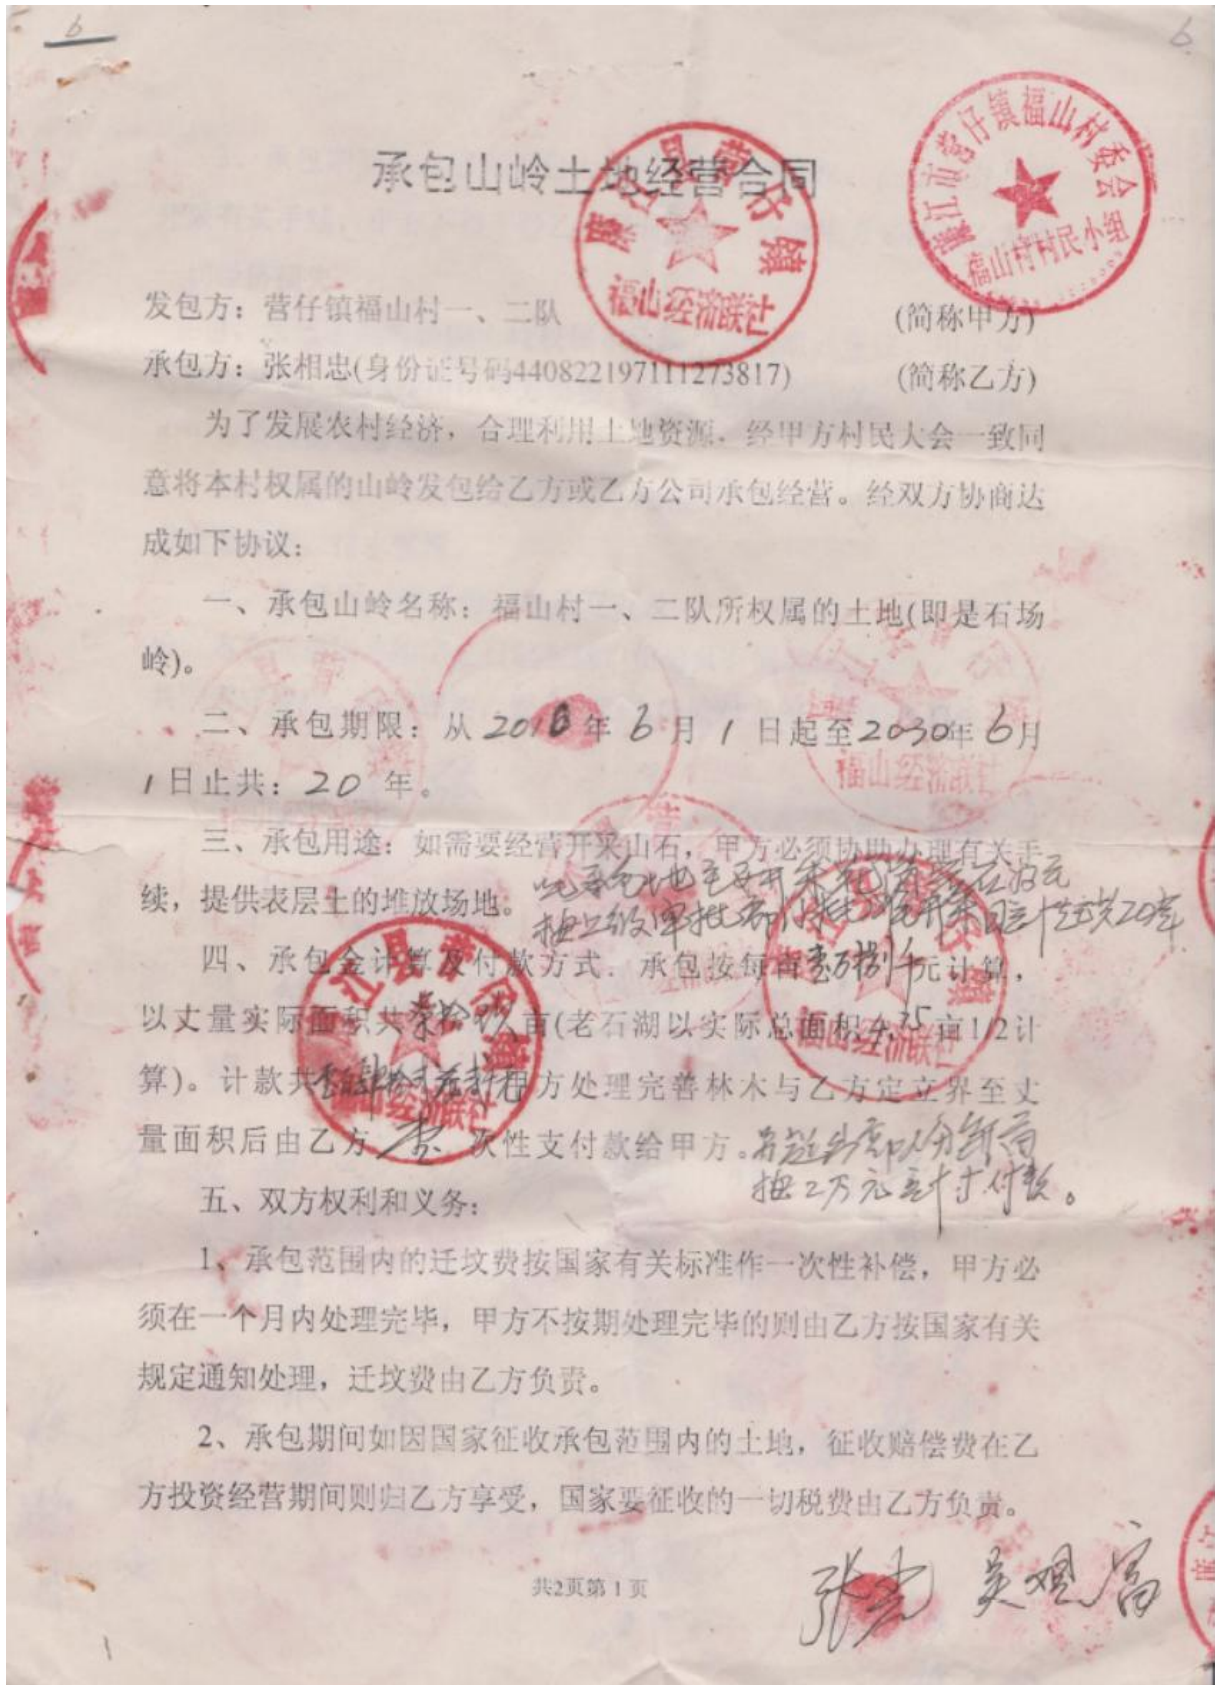 6
6
承包山岭土地经营合同
廉江县营仔镇
福山经济联社
廉江市营仔镇福山村委会
福山村村民小组
发包方：营仔镇福山村一、二队 (简称甲方)
承包方：张相忠(身份证号码440822197111273817) (简称乙方)
为了发展农村经济，合理利用土地资源．经甲方村民大会一致同
意将本村权属的山岭发包给乙方或乙方公司承包经营。经双方协商达
成如下协议：
一、承包山岭名称：福山村一、二队所权属的土地(即是石场
岭)。
二、承包期限：从2010年6月1日起至2030年6月
1日止共：20年。
福山经济联社
三、承包用途：如需要经营开采山石，甲方必须协助办理有关手
续，提供表层土的堆放场地。
四、承包金计算及付款方式．承包按每亩壹万捌仟元计算，
以丈量实际面积共 亩(老石湖以实际总面积4.75亩1/2计
算)。计款共 甲方处理完善林木与乙方定立界至丈
量面积后由乙方壹次性支付款给甲方。
五、双方权利和义务：
1、承包范围内的迁坟费按国家有关标准作一次性补偿，甲方必
须在一个月内处理完毕，甲方不按期处理完毕的则由乙方按国家有关
规定通知处理，迁坟费由乙方负责。
2、承包期间如因国家征收承包范围内的土地，征收赔偿费在乙
方投资经营期间则归乙方享受，国家要征收的一切税费由乙方负责。
共2页第1页